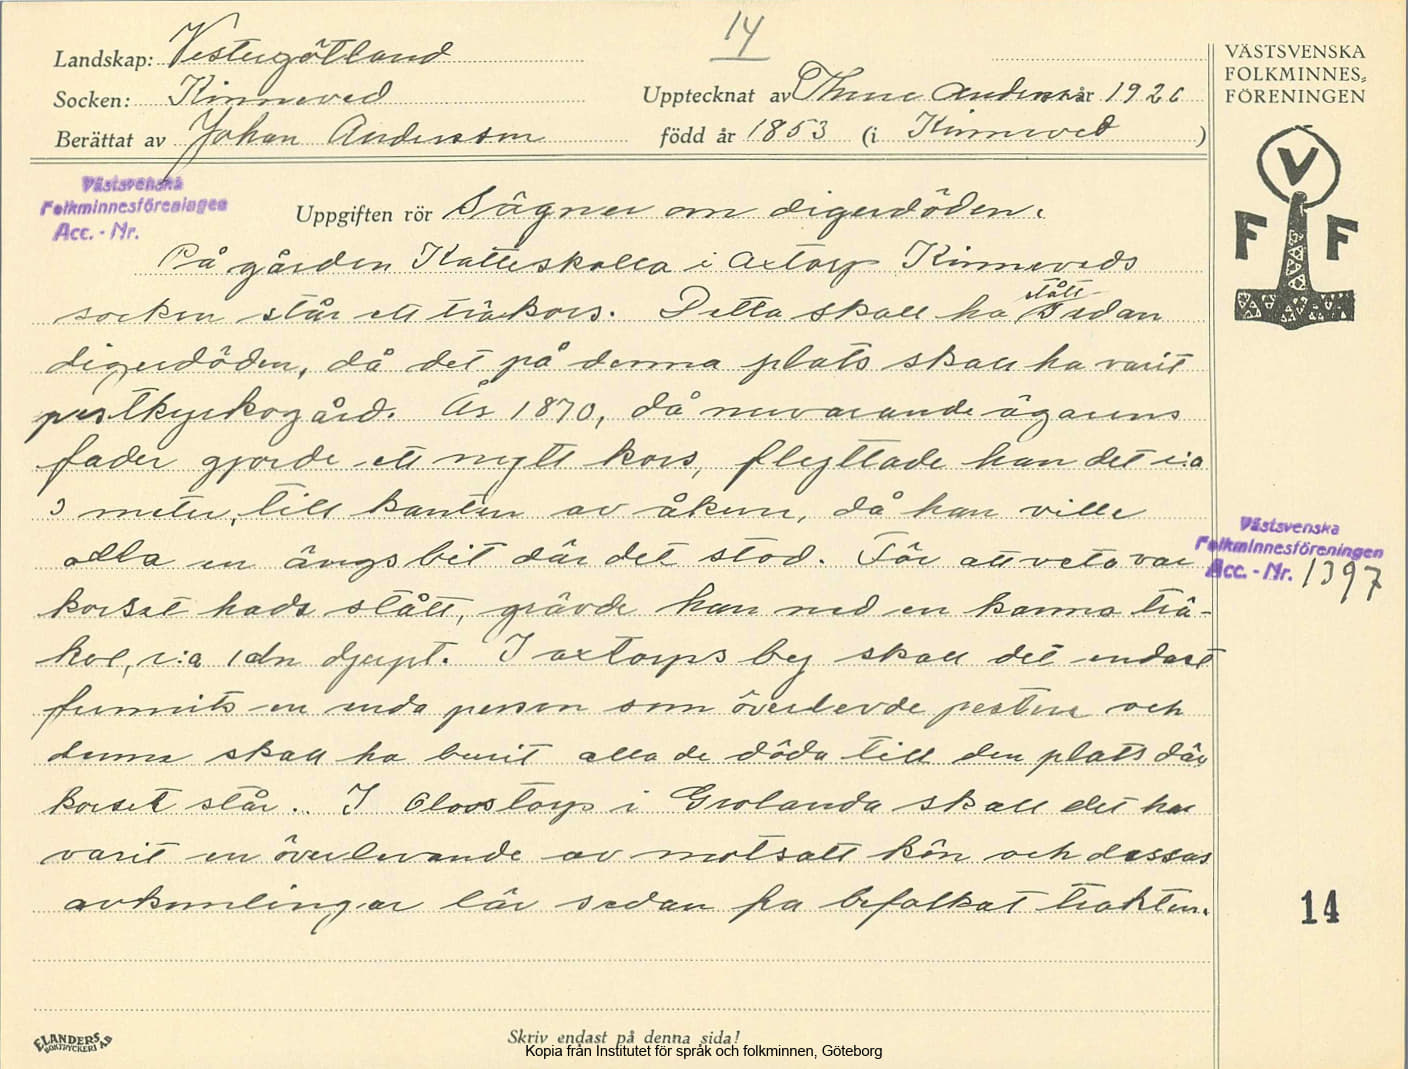 14
Landskap: Vestergötland
Socken: Kinneved
Upptecknat av Thure Andersson år 1926
Berättat av Johan Andersson född år 1853 (i Kinneved )
VÄSTSVENSKA
FOLKMINNES-
FÖRENINGEN
V
F F
Västsvenska
Folkminnesföreningen
Acc. - Nr.
Uppgiften rör Sägner om digerdöden.
På gården Katteskalla i Axtorp Kinneveds
socken står ett träkors. Detta skall ha stått sedan
digerdöden, då det på denna plats skall ha varit
pestkyrkogård. År 1870, då nuvarande ägarens
fader gjorde ett nytt kors, flyttade han det c:a
3 meter, till kanten av åkern, då han ville
odla en ängsbit där det stod. För att veta var
korset hade stått, grävde han ned en kanna trä-
kol, c:a 1 dm djupt. I Axtorps by skall det endast
funnits en enda person som överlevde pesten och
denna skall ha burit alla de döda till den plats där
korset står. I Olovstorp i Grolanda skall det ha
varit en överlevande av motsatt kön och dessas
avkomlingar lär sedan ha befolkat trakten.
Västsvenska
Folkminnesföreningen
Acc. - Nr. 1397
14
ELANDERS
BOKTRYCKERI AB
Skriv endast på denna sida!
Kopia från Institutet för språk och folkminnen, Göteborg